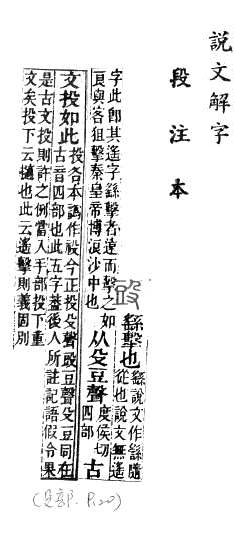 說文解字
段注本
繇擊也
繇說文作繇隨
從也說文無遙
字此卽其遙字繇擊者遠而擊之如
良與客狙擊秦皇帝博浪沙中也
从殳豆聲
度侯切
四部
古
文投如此
投各本譌作役今正投殳聲豆聲殳豆同在
古音四部也此五字蓋後人所註記語假令果
是古文投則許之例當入手部投下重
文矣投下云擿也此云遙擊則義固別
(殳部.